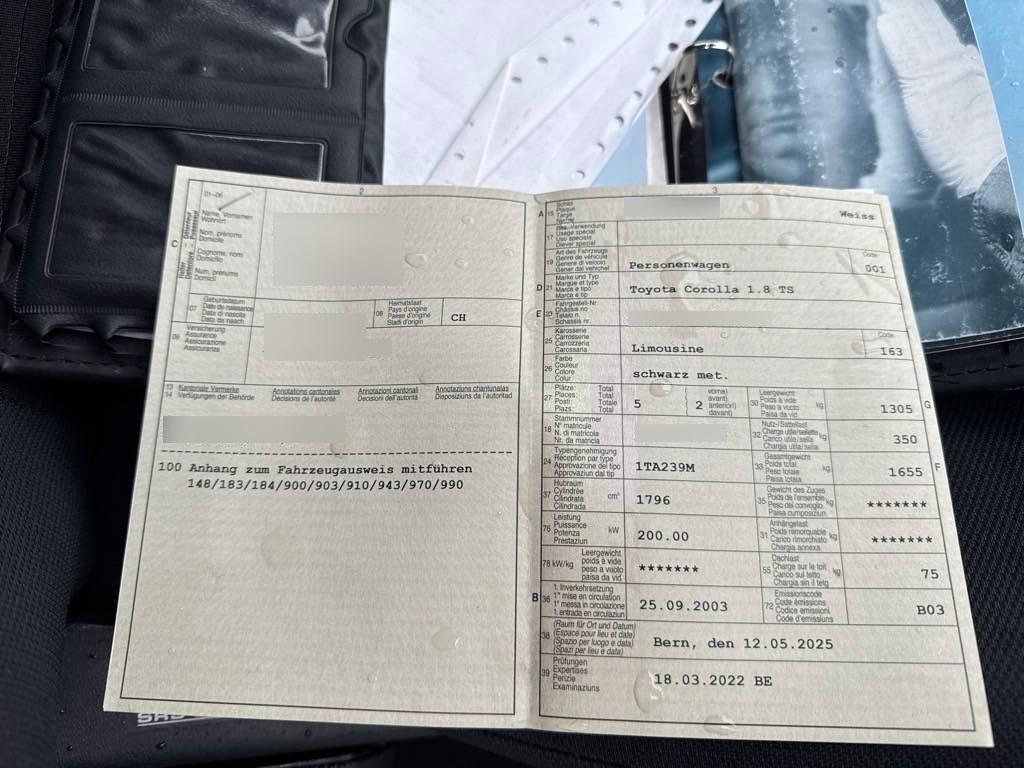 2
01-06
C
Halter
Détenteur
Detentore
Possessur
Name, Vornamen
Wohnort
Nom, prénoms
Domicile
Cognome, nomi
Domicilio
Num, prenums
Domicil
07
Geburtsdatum
Date de naissance
Data di nascita
Data da nasch.
08
Heimatstaat
Pays d'origine
Paese d'origine
Stadi d'origin
CH
09
Versicherung
Assurance
Assicurazione
Assicuranza
13 Kantonale Vermerke Annotations cantonales Annotazioni cantonali Annotaziuns chantunalas
14 Verfügungen der Behörde Décisions de l'autorité Decisioni dell'autorità Disposiziuns da l'autoritad
100 Anhang zum Fahrzeugausweis mitführen
148/183/184/900/903/910/943/970/990
3
A 15
Schild
Plaque
Targa
Weiss
17
Bes. Verwendung
Usage spécial
Uso speciale
Diever spezial
19
Art des Fahrzeugs
Genre de véhicule
Genere di veicolo
Gener dal vehichel
Personenwagen
Code
001
D 21
Marke und Typ
Marque et type
Marca e tipo
Marca e tip
Toyota Corolla 1.8 TS
E 23
Fahrgestell-Nr.
Châssis no
Telaio n.
Schassis nr.
25
Karosserie
Carrosserie
Carrozzeria
Carossaria
Limousine
Code
163
26
Farbe
Couleur
Colore
Colur
schwarz met.
27
Plätze: Total
Places: Total
Posti: Totale
Plazs: Total
5
2
vorne)
avant)
anteriori)
davant)
30
Leergewicht
Poids à vide
Peso a vuoto
Paisa da vid
kg
1305 G
18
Stammnummer
N° matricule
N. di matricola
Nr. da matricla
32
Nutz-/Sattellast
Charge utile/sellette
Carico utile/sella
Chargia utila/sella
kg
350
24
Typengenehmigung
Réception par type
Approvazione del tipo
Approvaziun dal tip
1TA239M
33
Gesamtgewicht
Poids total
Peso totale
Paisa totala
kg
1655 F
37
Hubraum
Cylindrée
Cilindrata
Cilindrada
cm³
1796
35
Gewicht des Zuges
Poids de l'ensemble
Peso del convoglio
Paisa cumposiziun
kg
*******
76
Leistung
Puissance
Potenza
Prestaziun
kW
200.00
31
Anhängelast
Poids remorquable
Carico rimorchiato
Chargia annexa
kg
*******
78 kW/kg
Leergewicht
poids à vide
peso a vuoto
paisa da vid
*******
55
Dachlast
Charge sur le toit
Carico sul tetto
Chargia sin il tetg
kg
75
B 36
1. Inverkehrsetzung
1re mise en circulation
1a messa in circolazione
1. entrada en circulaziun
25.09.2003
72
Emissionscode
Code émissions
Codice emissioni
Code d'emissiuns
B03
38
(Raum für Ort und Datum)
(Espace pour lieu et date)
(Spazio per luogo e data)
(Spazi per lieu e data)
Bern, den 12.05.2025
39
Prüfungen
Expertises
Perizie
Examinaziuns
18.03.2022 BE